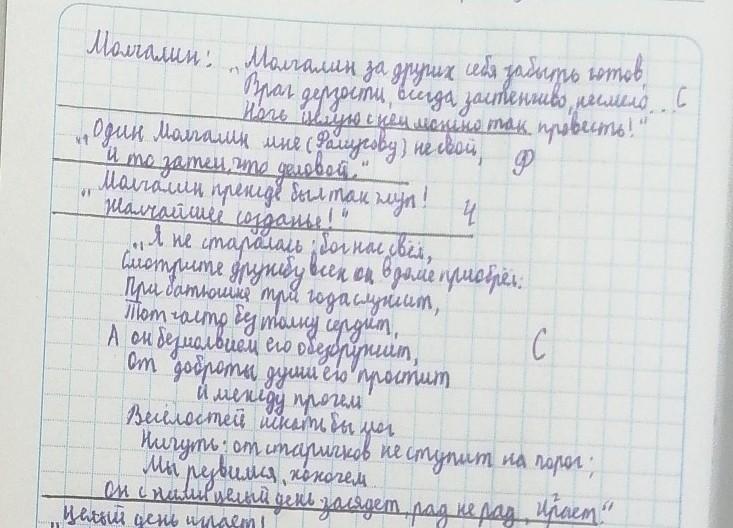 Молчалин: „Молчалин за других себя забыть готов,
Враг дерзости, всегда застенчиво, несмело... С
Ночь целую с кем можно так провесть!“
„Один Молчалин мне (Фамусову) не свой,
И то затем, что деловой.“ Ф
„Молчалин прежде был так глуп!
Жалчайшее созданье!“ Ч
„Я не старалась: бог нас свёл,
Смотрите дружбу всех он в доме приобрёл:
При батюшке три года служит,
Тот часто без толку сердит,
А он безмолвием его обезоружит, С
От доброты души его простит
И между прочем
Весёлостей искать бы мог
Ничуть: от старичков не ступит на порог;
Мы резвимся, хохочем
Он с ними целый день засядет, рад не рад, играет.“
„Целый день играет!